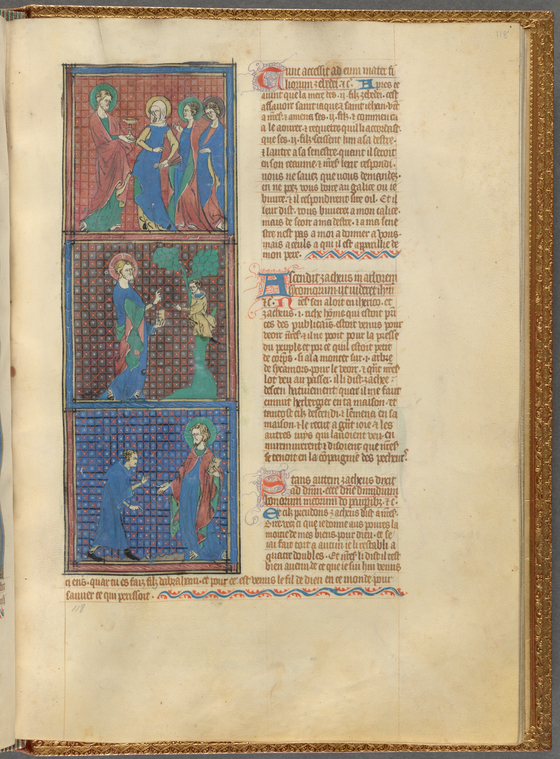 118
Tunc accessit ad eum mater fi
liorum zebedei ⁊c. Apres ce
auint que la mere des .ii. filz zebedei. cest
assauoir saint iaque ⁊ saint iehan. vint
a ⁊ amena ses .ii. filz ⁊ commenca
a le aourer ⁊ requerre quil li acordast
que ses .ii. filz seissent lun a sa destre.
⁊ lautre a sa senestre quant il seroit
en son ⁊ respondi.
nous ne sauez que vous demandez.
en ne poez vous boire au galice ou ie
buure. ⁊ il respondirent sire oil. Et il
leur dist. vous buuerez a mon calice.
mais de seoir a ma destre ⁊ a ma sene
stre nest pas a moi a donner a vous.
mais a ceuls a qui il est apparillie de
mon pere.
Ascendit zacheus in arborem
sycomorum ut uideret ihm
⁊c. sen aloit en iherico. et
zacheus .i. riche homs qui estoit prin
ces des publicans. estoit venus pour
veoir ⁊ il ne pooit pour la presse
du peuple et por ce quil estoit petit
de corps. si ala monter sur .i. arbre
de sycamors pour le veoir ⁊ quant
lot veu au passer. il li dist zachee
descen hastiuement quar il me faut
ennuit herbegier en ta maison. et
tantost cilz descendi. ⁊ lemena en sa
maison ⁊ le recut a grant ioie ⁊ les
autres iuys qui lauoient veu en
murmurerent ⁊ disoient que
se tenoit en la compaignie des pecheurs.
Stans autem zacheus dixit
ad dominum. ecce domine dimidium
bonorum meorum do pauperibus. ⁊c.
Et cilz preudons zacheus dist a
Sire vez ci que ie donne aus poures la
moitie de mes biens pour dieu. et se
iai fait tort a aucun ie li restabli a
quatre doubles. Et li dist il est
bien auenu de ce que ie sui hui
ci ens. quar tu es faiz filz dabraham. et pour ce est venus le fil de dieu en ce monde pour
sauuer ce qui perissoit.
118